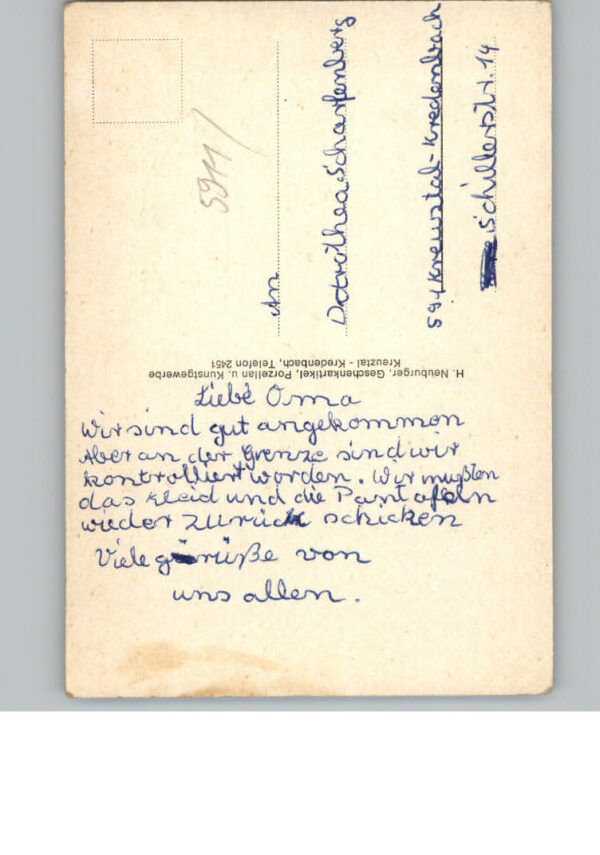 Liebe Oma
Wir sind gut angekommen
Aber an der Grenze sind wir
kontrolliert worden. Wir mußten
das Kleid und die Pantofeln
wieder zurück schicken
Viele grüße von
uns allen.
H. Neuburger, Geschenkartikel, Porzellan u. Kunstgewerbe
Kreuztal - Kredenbach, Telefon 2451
An
Dorothea Scharfenberg
591 Kreuztal-Kredenbach
Schillerstr. 14
5911/